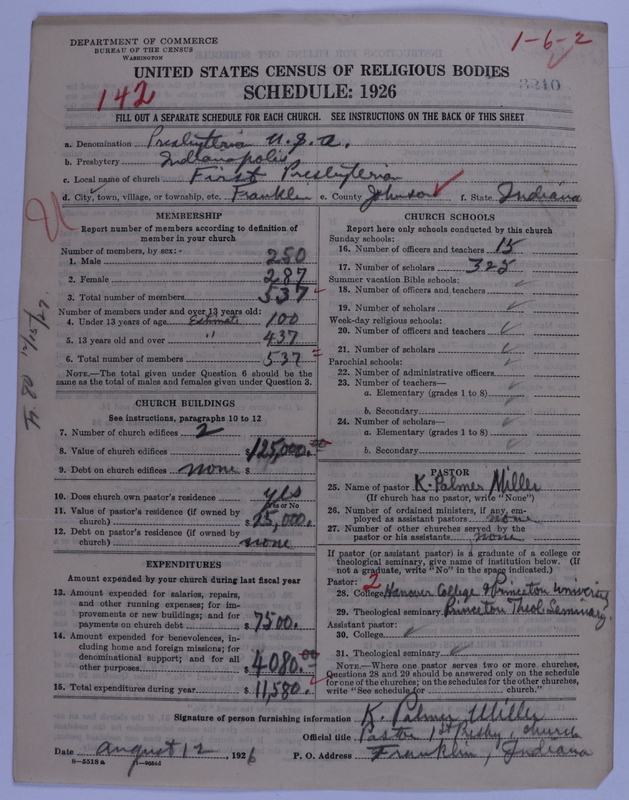 DEPARTMENT OF COMMERCE
BUREAU OF THE CENSUS
WASHINGTON
1-6-2
UNITED STATES CENSUS OF RELIGIOUS BODIES
3210
142
SCHEDULE: 1926
FILL OUT A SEPARATE SCHEDULE FOR EACH CHURCH. SEE INSTRUCTIONS ON THE BACK OF THIS SHEET
a. Denomination Presbyterian U.S.A.
b. Presbytery Indianapolis
c. Local name of church First Presbyterian
d. City, town, village, or township, etc. Franklin e. County Johnson f. State Indiana
MEMBERSHIP
Report number of members according to definition of
member in your church
Number of members, by sex:-
1. Male 250
2. Female 287
3. Total number of members 537
Number of members under and over 13 years old:
4. Under 13 years of age Estimate 100
5. 13 years old and over " 437
6. Total number of members 537
NOTE.—The total given under Question 6 should be the
same as the total of males and females given under Question 3.
CHURCH BUILDINGS
See instructions, paragraphs 10 to 12
7. Number of church edifices 2
8. Value of church edifices $125,000.00
9. Debt on church edifices none $
10. Does church own pastor's residence yes
Yes or No
11. Value of pastor's residence (if owned by
church) $ 25,000.
12. Debt on pastor's residence (if owned by
church) none
EXPENDITURES
Amount expended by your church during last fiscal year
13. Amount expended for salaries, repairs,
and other running expenses; for im-
provements or new buildings; and for
payments on church debt $ 7500.
14. Amount expended for benevolences, in-
cluding home and foreign missions; for
denominational support; and for all
other purposes $ 4080.00
15. Total expenditures during year $ 11,580.
CHURCH SCHOOLS
Report here only schools conducted by this church
Sunday schools:
16. Number of officers and teachers 15
17. Number of scholars 325
Summer vacation Bible schools:
18. Number of officers and teachers
19. Number of scholars
Week-day religious schools:
20. Number of officers and teachers
21. Number of scholars
Parochial schools:
22. Number of administrative officers
23. Number of teachers—
a. Elementary (grades 1 to 8)
b. Secondary
24. Number of scholars—
a. Elementary (grades 1 to 8)
b. Secondary
PASTOR
25. Name of pastor K. Palmer Miller
(If church has no pastor, write "None")
26. Number of ordained ministers, if any, em-
ployed as assistant pastors none
27. Number of other churches served by the
pastor or his assistants none
If pastor (or assistant pastor) is a graduate of a college or
theological seminary, give name of institution below. (If
not a graduate, write "No" in the space indicated.)
Pastor: 2
28. College Hanover College & Princeton University
29. Theological seminary Princeton Theol. Seminary.
Assistant pastor:
30. College
31. Theological seminary
NOTE.—Where one pastor serves two or more churches,
Questions 28 and 29 should be answered only on the schedule
for one of the churches; on the schedules for the other churches,
write "See schedule for church."
Signature of person furnishing information K. Palmer Miller
Official title Pastor 1st Presby. church
Date August 12, 1926 P. O. Address Franklin, Indiana
8-5518a